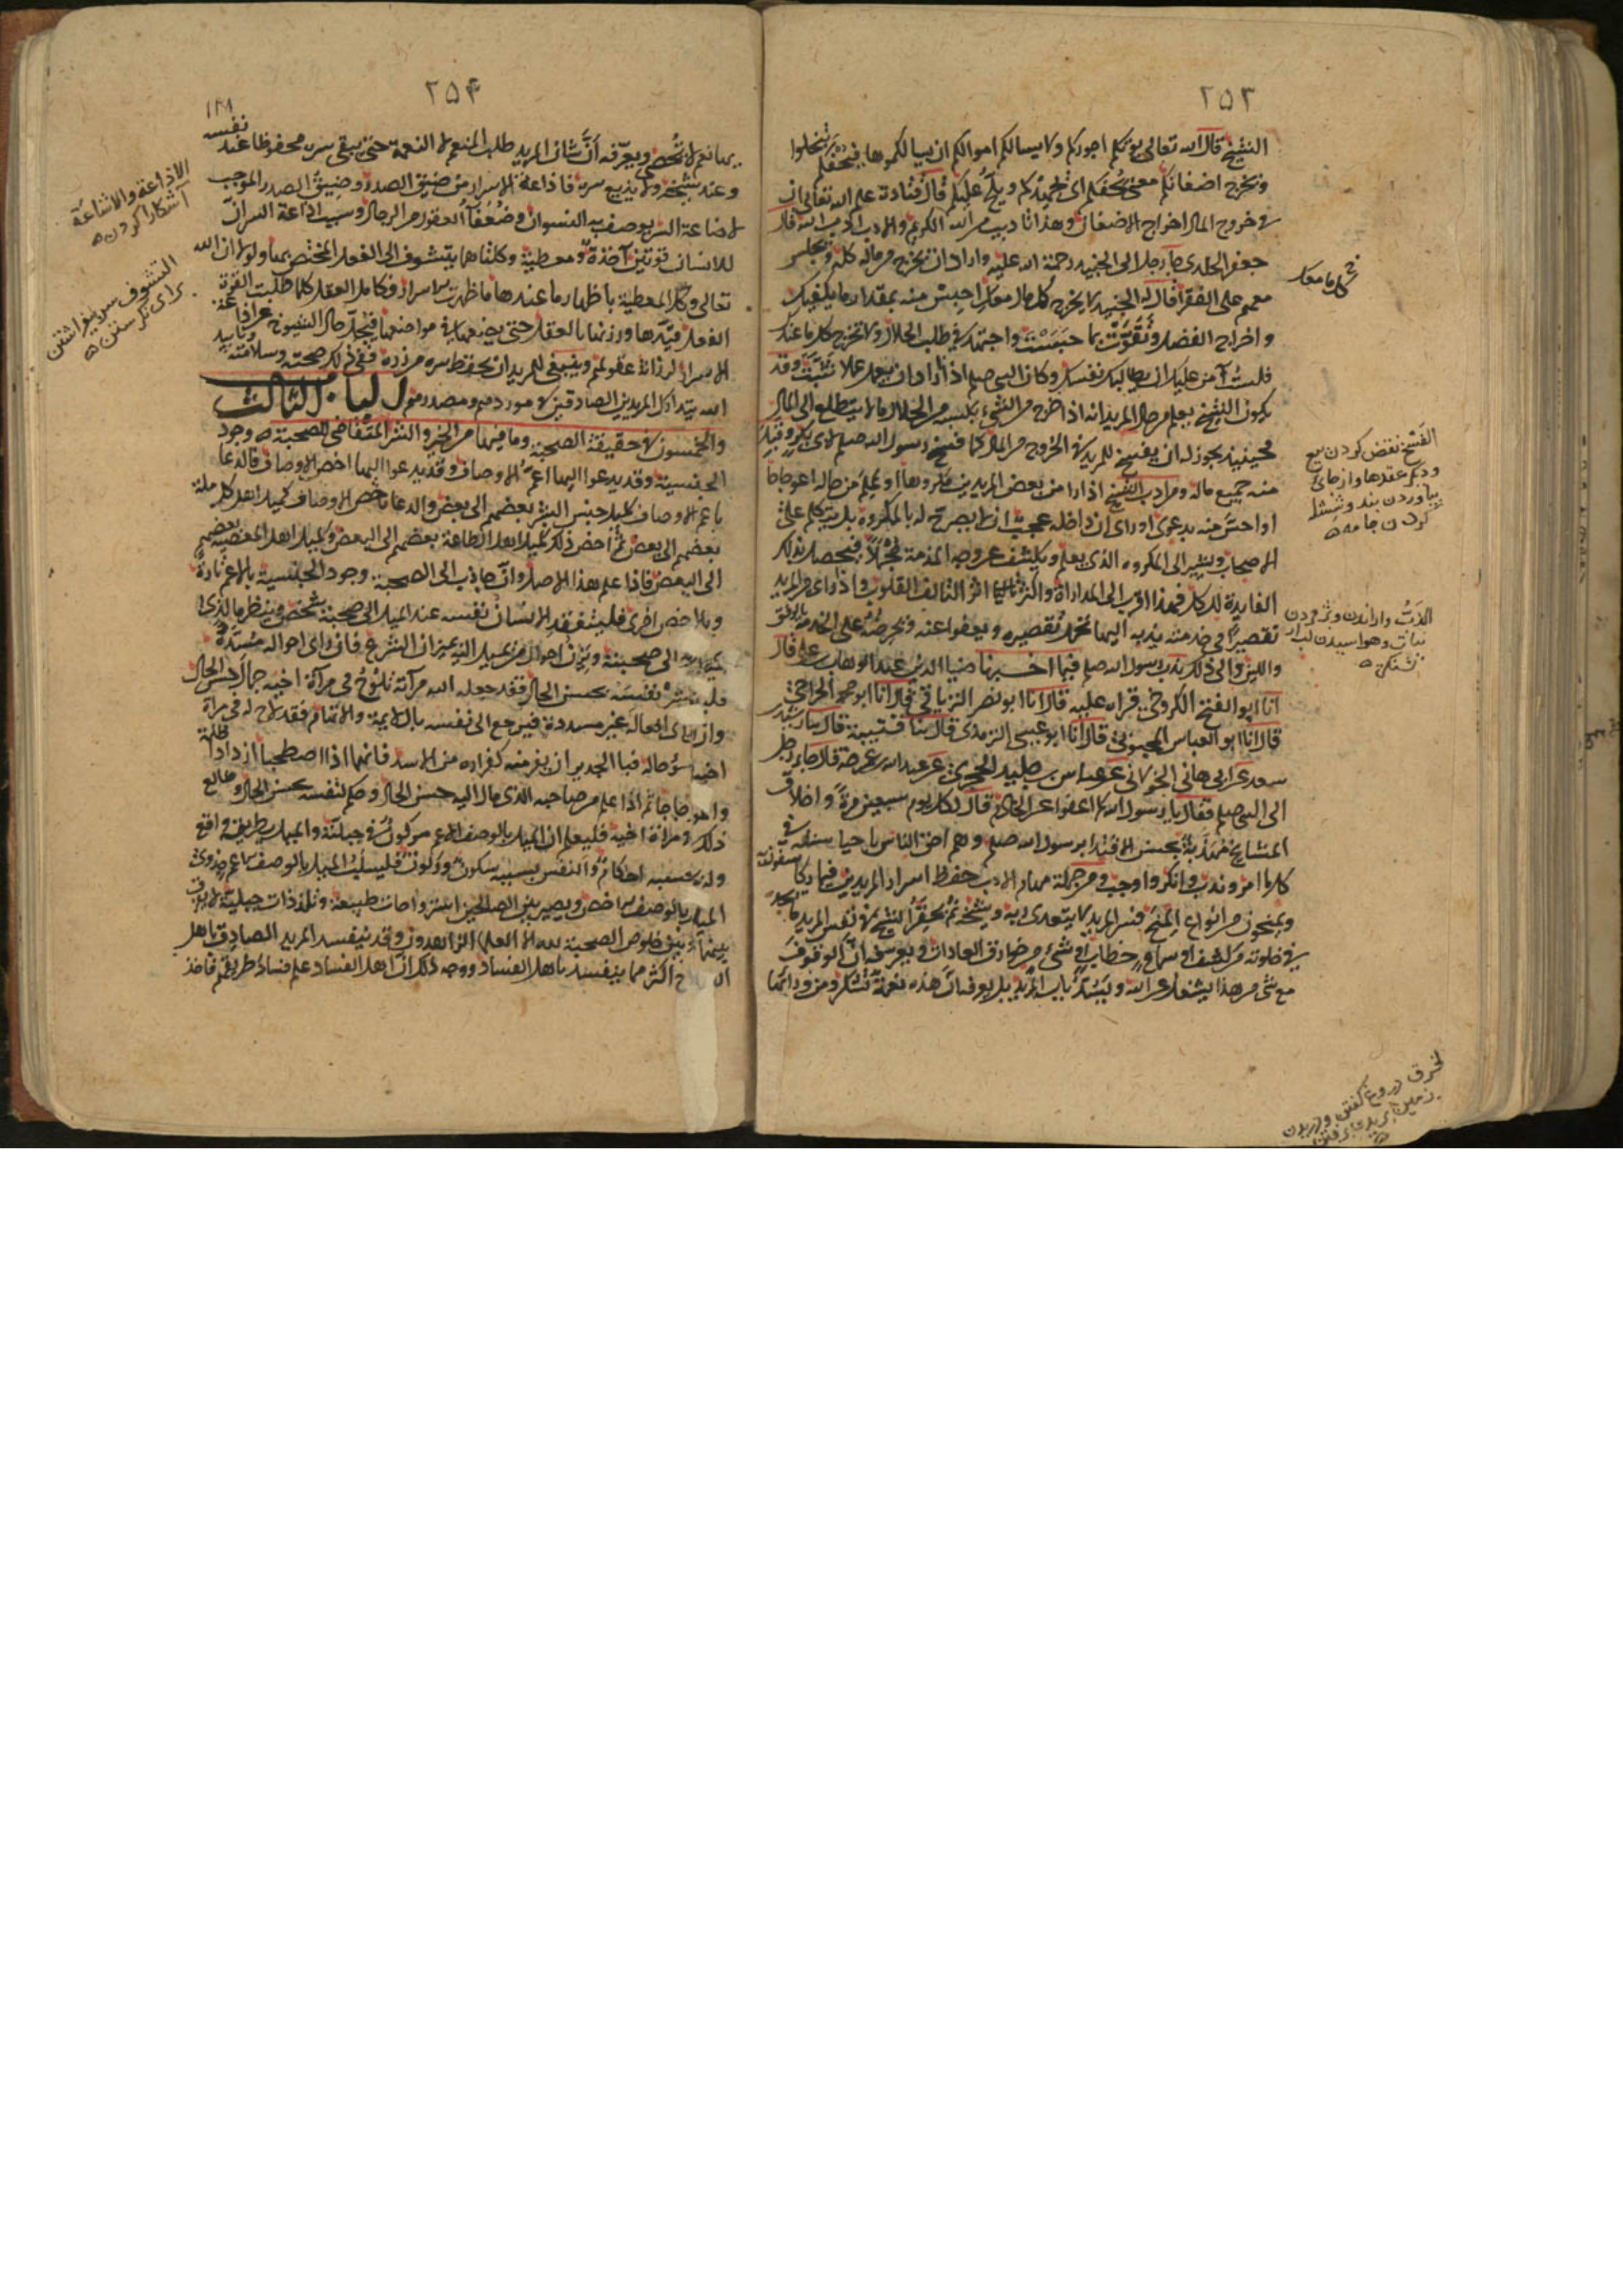 ٢٥٣
الشيخ قال الله تعالى يؤتكم اجوركم ولا يسالكم اموالكم ان يسالكموها فيحفكم تبخلوا
ويخرج اضغانكم معنى يحفكم اى يجهدكم ويلح عليكم قال قتادة علم الله تعالى ان
فى خروج المال اخراج الاضغان وهذا تاديب من الله الكريم والادب ادب الله قال
جعفر الخلدى جاء رجل الى الجنيد رحمة الله عليه واراد ان يخرج من ماله كله ويجلس
معهم على الفقر فقال له الجنيد لا تخرج كل ما معك احبس منه مقدار ما يكفيك
واخرج الفضل وتقوت بما حبست واجتهد فى طلب الحلال ولا تخرج كل ما عندك
فلست آمن عليك ان تطالبك نفسك وكان النبى صلعم اذا اراد ان يعمل عملا تثبت وقد
يكون الشيخ يعلم من حال المريد انه اذا خرج من الشىء يكسبه من الحال ما لا يتطلع الى المال
فحينئذ يجوز له ان يفسح للمريد فى الخروج من المال كما فسح رسول الله صلعم لابى بكر وقبل
منه جميع ماله ومن ادب الشيخ اذا راى من بعض المريدين مكروها او علم من حاله اعوجاجا
او احس منه بدعوى او راى انه داخله عجب ان لا يصرح له بالمكروه بل يتكلم على
الاصحاب ويشير الى المكروه الذى يعلم ويكشف عن وجه المذمة مجملا فيحصل بذلك
الفايدة للكل فهذا اقرب الى المداراة واكثر اثرا لتالف القلوب واذا راى من المريد
تقصيرا فى خدمة ندبه اليها يحمل تقصيره ويعفو عنه ويحرضه على الخدمة بالرفق
واللين والى ذلك ندب رسول الله صلعم فيما اخبرنا ضياء الدين عبد الوهاب بن على قال
انا ابو الفتح الكروخى قراه عليه قال انا ابو نصر الترياقى قال انا ابو محمد الجراحى
قال انا ابو العباس المحبوبى قال انا ابو عيسى الترمذى قال ثنا قتيبة قال ثنا رشدين
سعد عن ابى هانى الخولانى عن عباس بن جليد الحجرى عن عبد الله بن عمر قال جاء رجل
الى النبى صلعم فقال يا رسول الله كم اعفوا عن الخادم قال كل يوم سبعين مرة واخلاق
المشايخ مهذبة بحسن الاقتداء برسول الله صلعم وهم احق الناس باحياء سنته فى
كل ما امر وندب وانكر واوجب ومن جملة مهام الادب حفظ اسرار المريدين فيما يكاشفون به
ويمنحون من انواع المنح فسر المريد لا يتعدى ربه وشيخه ثم يحقر الشيخ فى نفس المريد ما يجده
فى خلوته من كشف او سماع خطاب او شىء من خوارق العادات ويعرفه ان الوقوف
مع شى من هذا يشغل عن الله ويسد باب المزيد بل يعرفه ان هذه نعمة تشكر ومن ورائها
كل ما معك
الفسخ نقض كردن بيع
وديكر عقدها واز جاى
بياوردن بند وشسته
كردن جامه
نبات
خرق دروغ كفتن ودريدن
٢٥٤
نعم لا تحصى ويعرفه ان شان المريد طلب المنعم لا النعمة حتى يبقى سره محفوظا عند نفسه
وعند شيخه ولا يذيع سره فاذاعة الاسرار من ضيق الصدر وضيق الصدر الموجب
لاذاعة السر يوصف به النسوان وضعفاء العقول من الرجال وسبب اذاعة السر ان
للانسان قوتين آخذة ومعطية وكلتاهما يتشوف الى الفعل المختص بها ولولا ان الله
تعالى وكل المعطية باظهار ما عندها ما ظهرت الاسرار فكامل العقل كلما طلبت القوة
الفعل قيدها ووزنها بالعقل حتى يضعها فى مواضعها فيجل حال الشيوخ عن اذاعة
الاسرار لرزانة عقولهم وينبغى للمريد ان يحفظ سره من زره ففى ذلك صحته وسلامته وتاييد
الله يتدارك المريدين الصادقين فى موردهم ومصدرهم الباب الثالث
والخمسون فى حقيقة الصحبة وما فيها من الخير والشر المقتضى للصحبة وجود
الجنسية وقد يدعو اليها اعم الاوصاف وقد يدعو اليها اخص الاوصاف فالدعاء
باعم الاوصاف كميل جنس البشر بعضهم الى بعض والدعا باخص الاوصاف كميل اهل كل ملة
بعضهم الى بعض ثم اخص ذلك كميل اهل الطاعة بعضهم الى البعض وكميل اهل المعصية بعضهم
الى البعض فاذا علم هذا الاصل وان الجاذب الى الصحبة وجود الجنسية بالاعم تارة
وبالاخص اخرى فليتفقد الانسان نفسه عند الميل الى صحبة شخص وينظر ما الذى
يميل به الى صحبته ويزن احوال من يميل اليه بميزان الشرع فان راى احواله مسددة
فليبشر نفسه بحسن الحال فقد جعل الله مرآته تلوح فى مرآة اخيه جمال حسن الحال
وان راى افعاله غير مسددة فيرجع الى نفسه باللايمة والاتهام فقد لاح له فى مرآة
اخيه سوء حاله فبالجدير ان يفر منه كفراره من الاسد فانهما اذا اصطحبا ازدادا ظلمة
واعوجاجا ثم اذا علم من صاحبه الذى مال اليه حسن الحال وحكم لنفسه بحسن الحال وطالع
ذلك فى مرآة اخيه فليعلم ان الميل بالوصف الاعم مركوز فى جبلته والميل بطريقه واقع
وله بحسبه احكام وللنفس بسببه سكون وركون فليسلب الميل بالوصف الاعم جدوى
الميل بالوصف الاخص ويصير بين الصالحين استرواحات طبيعة وتلذذات جبلية لا يفرق
بينها وبين خلوص الصحبة لله الا العلماء الزاهدون وقد ينفسد المريد الصادق باهل
الصلاح اكثر مما ينفسد باهل الفساد ووجه ذلك ان اهل الفساد علم فساد طريقهم فاخذ
الاذاعة والاشاعة
آشكارا كردن
التشوف